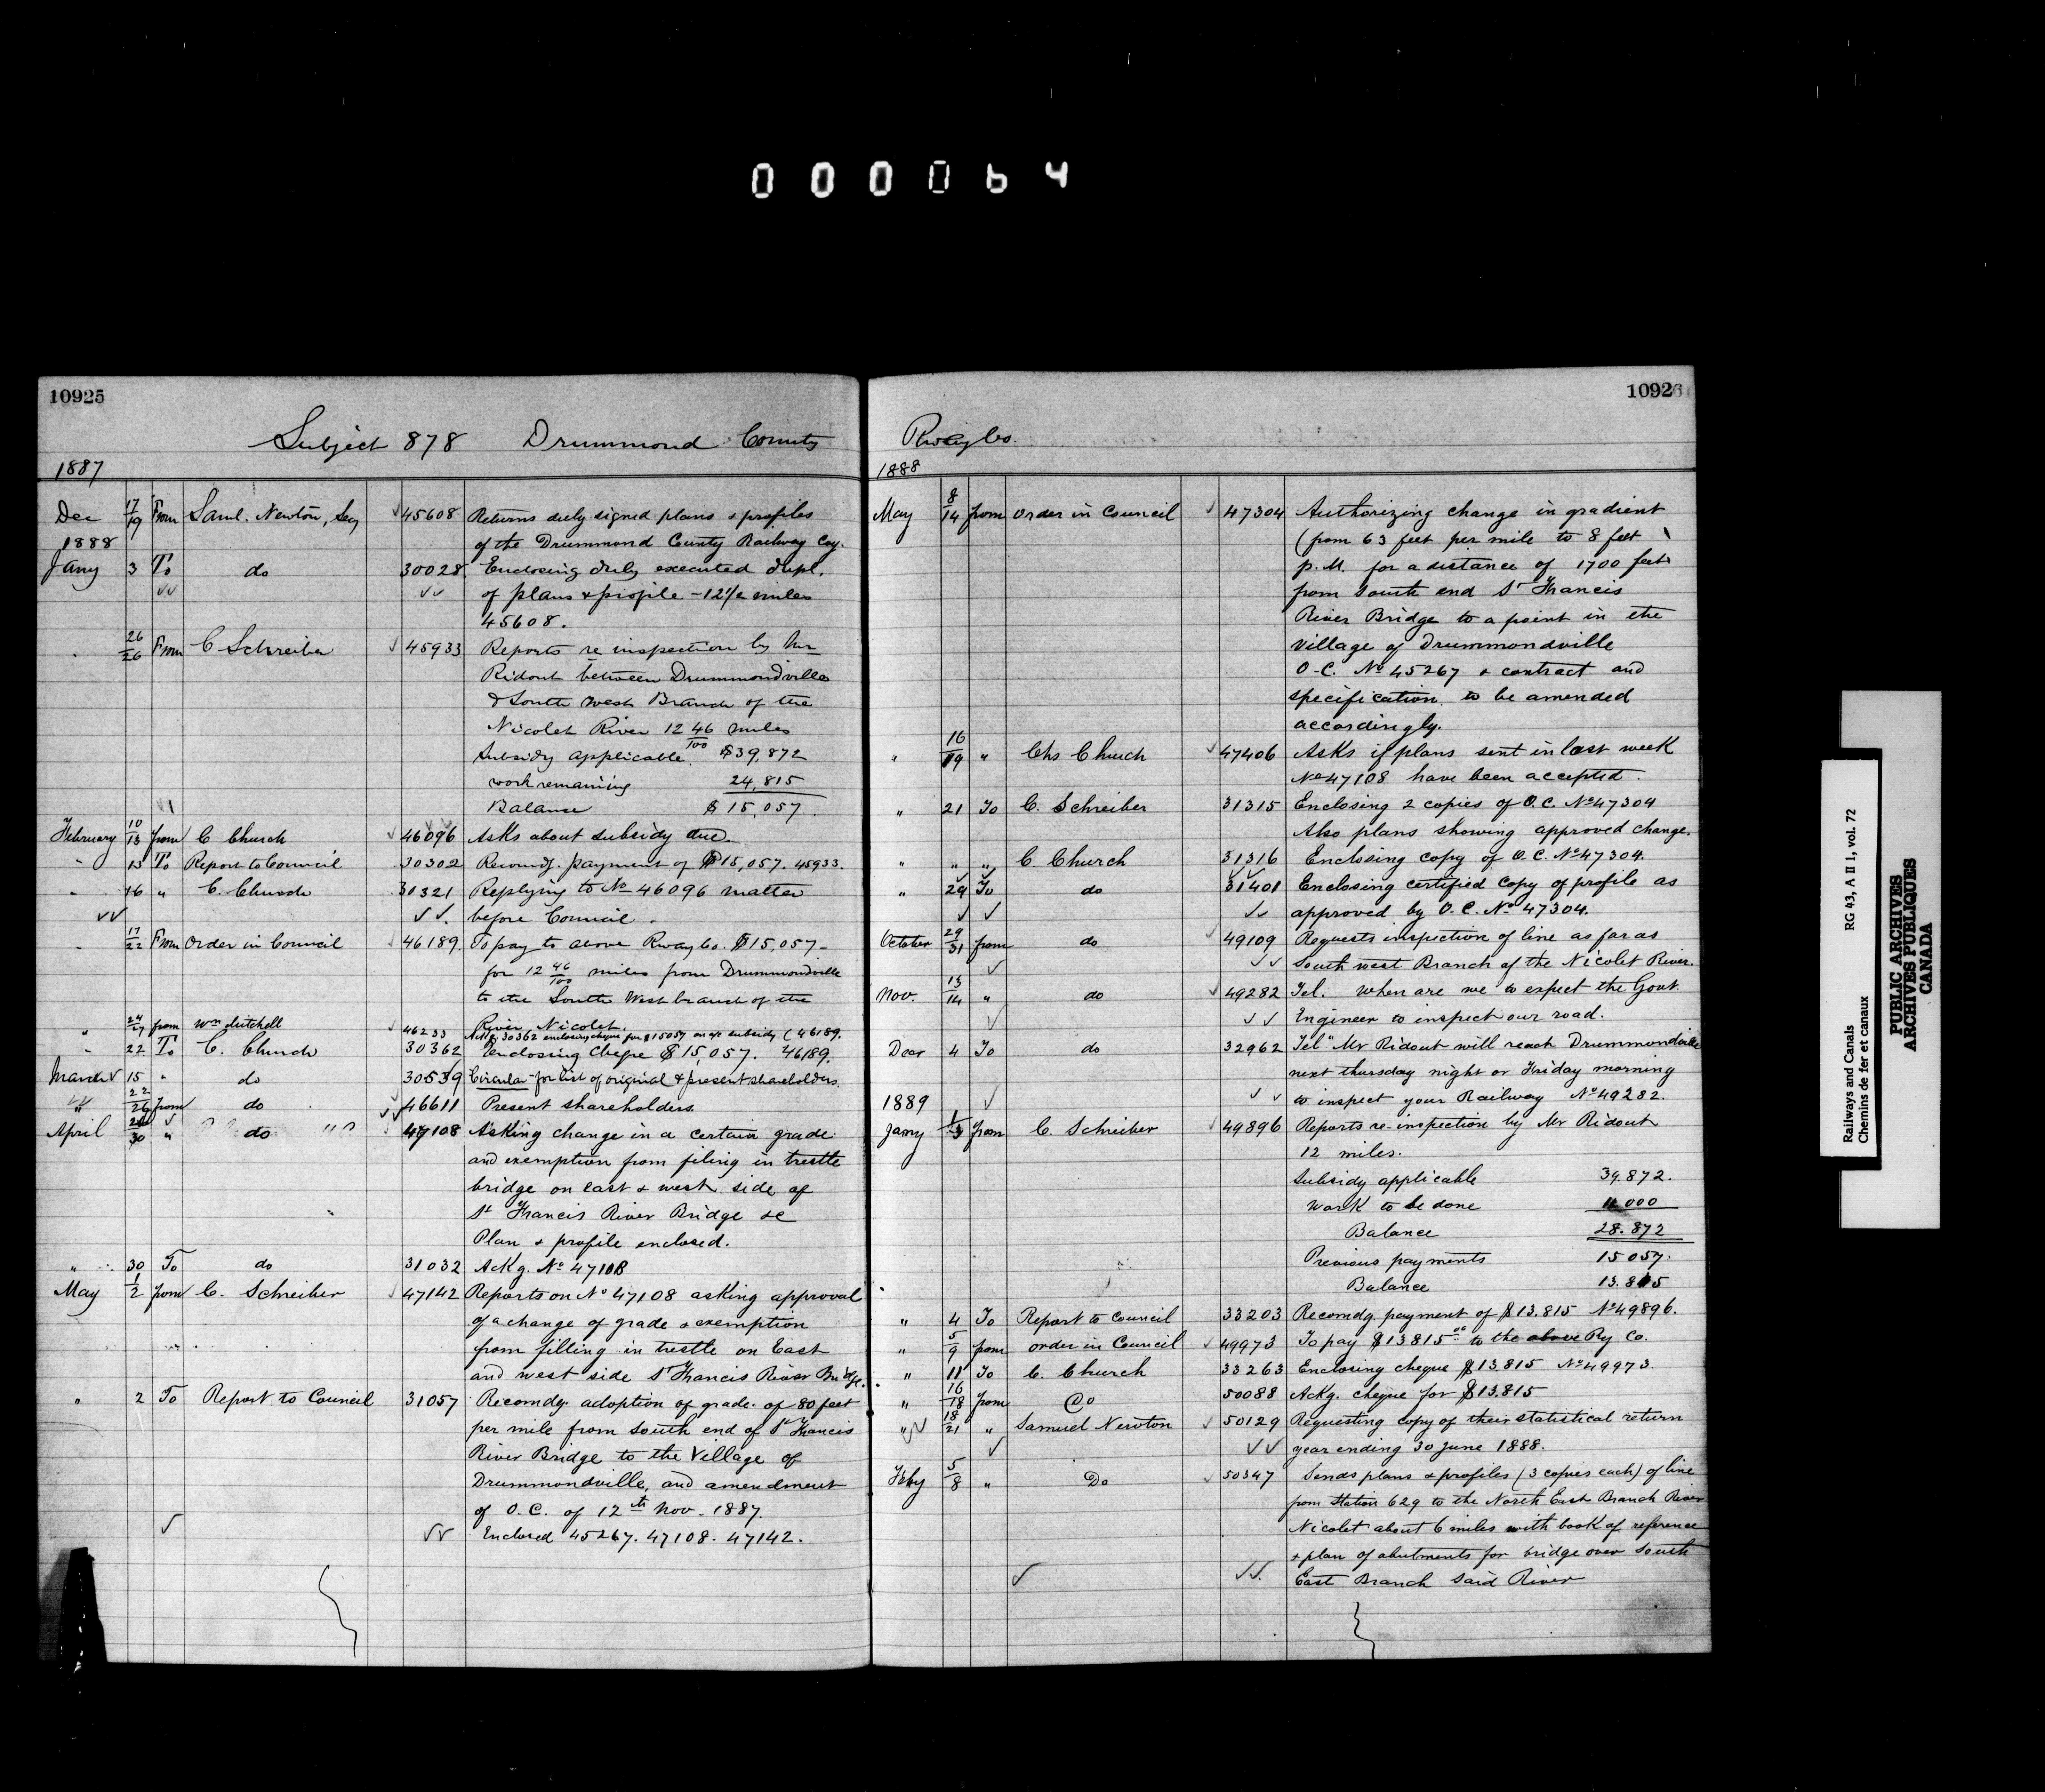 000064
10925
Subject 878 Drummond County
1887
Dec 17/19 From Saml. Newton, Secy 45608 Returns duly signed plans & profiles
of the Drummond County Railway Coy.
1888
Jany 3 To do 30028 Enclosing duly executed dupl.
of plans & profile - 12 1/2 miles
45608.
" 26/26 From C Schreiber 45933 Reports re inspection by Mr
Ridout between Drummondville
& South West Branch of the
Nicolet River 12 46/100 miles
Subsidy applicable. $39,872
work remaining 24,815
Balance $15,057
February 10/13 from C Church 46096 Asks about subsidy due.
" 13 To Report to Council 30302 Recomdg. payment of $15,057. 45933.
" 16 " C. Church 30321 Replying to No 46096 matter
before Council.
" 17/22 From Order in Council 46189. To pay to above Rway Co. $15,057-
for 12 46/100 miles from Drummondville
to the South West branch of the
River Nicolet.
" 24/27 from Wm Mitchell 46233 Ackg. 30362 enclosing cheque for $15057 on a/c subsidy (46189.
" 22 To C. Church 30362 Enclosing Cheque $15,057. 46189.
March 15 " do 30539 Circular for list of original & present shareholders.
" 22/26 from do 46611 Present shareholders.
April 26/30 " do 47108 Asking change in a certain grade
and exemption from filing in trestle
bridge on east & west side of
St Francis River Bridge &c
Plan & profile enclosed.
" 30 To do 31032 Ackg. No 47108
May 1/2 from C. Schreiber 47142 Reports on No 47108 asking approval
of a change of grade & exemption
from filling in trestle on East
and west side St Francis River Bridge.
" 2 To Report to Council 31057 Recomdg. adoption of grade of 80 feet
per mile from South end of St Francis
River Bridge to the Village of
Drummondville, and amendment
of O.C. of 12th Nov. 1887.
Enclosed 45267. 47108. 47142.
10926
Rway Co.
1888
May 8/14 from Order in Council 47304 Authorizing change in gradient
(from 63 feet per mile to 8 feet
p.M. for a distance of 1700 feet
from South end St Francis
River Bridge to a point in the
Village of Drummondville
O.C. No 45267 & contract and
specification to be amended
accordingly.
" 16/19 " Chs Church 47406 Asks if plans sent in last week
No 47108 have been accepted.
" 21 To C. Schreiber 31315 Enclosing 2 copies of O.C. No 47304
Also plans showing approved change.
" " " C. Church 31316 Enclosing copy of O.C. No 47304.
" 29 To do 31401 Enclosing certified copy of profile as
approved by O.C. No 47304.
October 29/31 from do 49109 Requests inspection of line as far as
South west Branch of the Nicolet River.
Nov. 13/14 " do 49282 Tel. When are we to expect the Govt.
Engineer to inspect our road.
Decr 4 To do 32962 Tel" Mr Ridout will reach Drummondville
next thursday night or Friday morning
to inspect your Railway No 49282.
1889
Jany 1/3 from C. Schreiber 49896 Reports re-inspection by Mr Ridout
12 miles.
Subsidy applicable 39.872.
Work to be done 11 000
Balance 28.872
Previous payments 15 057.
Balance 13.815
" 4 To Report to Council 33203 Recomdg payment of $13.815 No 49896.
" 5/9 from order in Council 49973 To pay $13815 00 to the above Ry Co.
" 11 To C. Church 33263 Enclosing cheque $13.815 No 49973.
" 16/18 from Do 50088 Ackg. cheque for $13.815
" 18/21 " Samuel Newton 50129 Requesting copy of their statistical return
year ending 30 June 1888.
Feby 5/8 " Do 50347 Sends plans & profiles (3 copies each) of line
from Station 629 to the North East Branch River
Nicolet about 6 miles with book of reference
& plan of abutments for bridge over South
East Branch said River
Railways and Canals RG 43, A II 1, vol. 72
Chemins de fer et canaux
PUBLIC ARCHIVES
ARCHIVES PUBLIQUES
CANADA